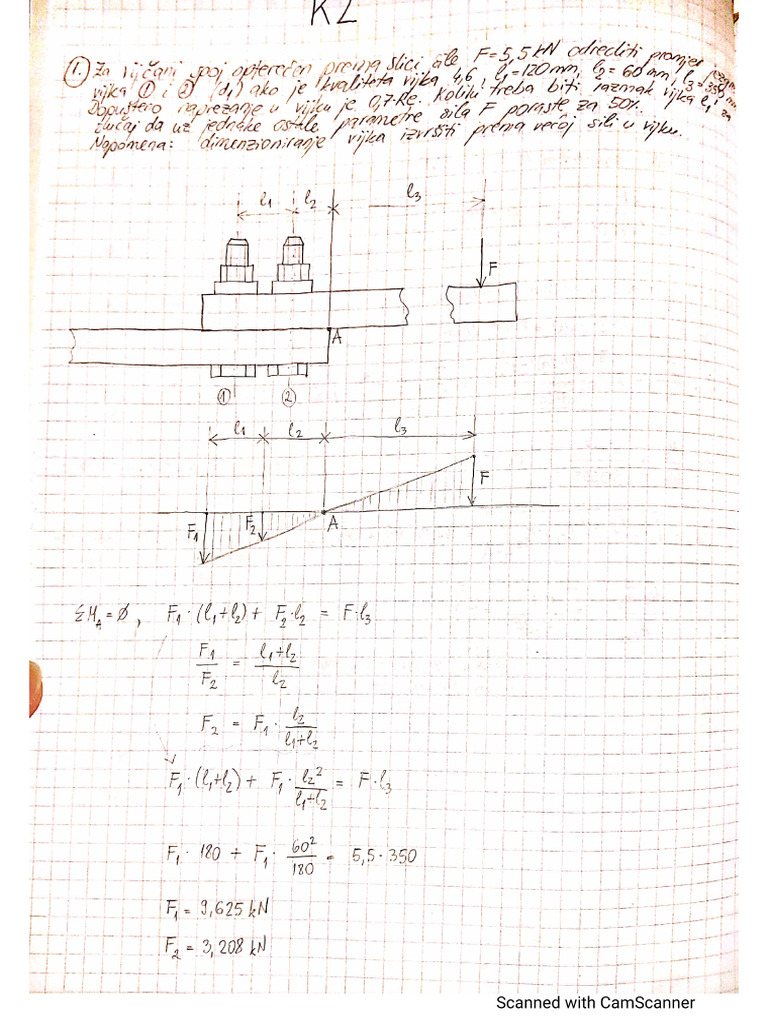 K2
1. Za vijčani spoj opterećen prema slici sile F=5,5 kN odrediti promjer jezgre
vijka ① i ② (d₁) ako je kvaliteta vijka 4.6, l₁=120mm, l₂=60mm, l₃=350mm
Dopušteno naprezanje u vijku je 0,7·Re. Koliki treba biti razmak vijka l₁ za
slučaj da uz jednake ostale parametre sila F poraste za 50%.
Napomena: dimenzioniranje vijka izvršiti prema većoj sili u vijku.
l₁ l₂ l₃
F
A
① ②
l₁ l₂ l₃
F₁ F₂ A F
ΣM_A=Ø, F₁·(l₁+l₂)+ F₂·l₂ = F·l₃
F₁/F₂ = (l₁+l₂)/l₂
F₂ = F₁· l₂/(l₁+l₂)
F₁·(l₁+l₂)+ F₁· l₂²/(l₁+l₂) = F·l₃
F₁· 180 + F₁· 60²/180 = 5,5·350
F₁= 9,625 kN
F₂= 3,208 kN
Scanned with CamScanner